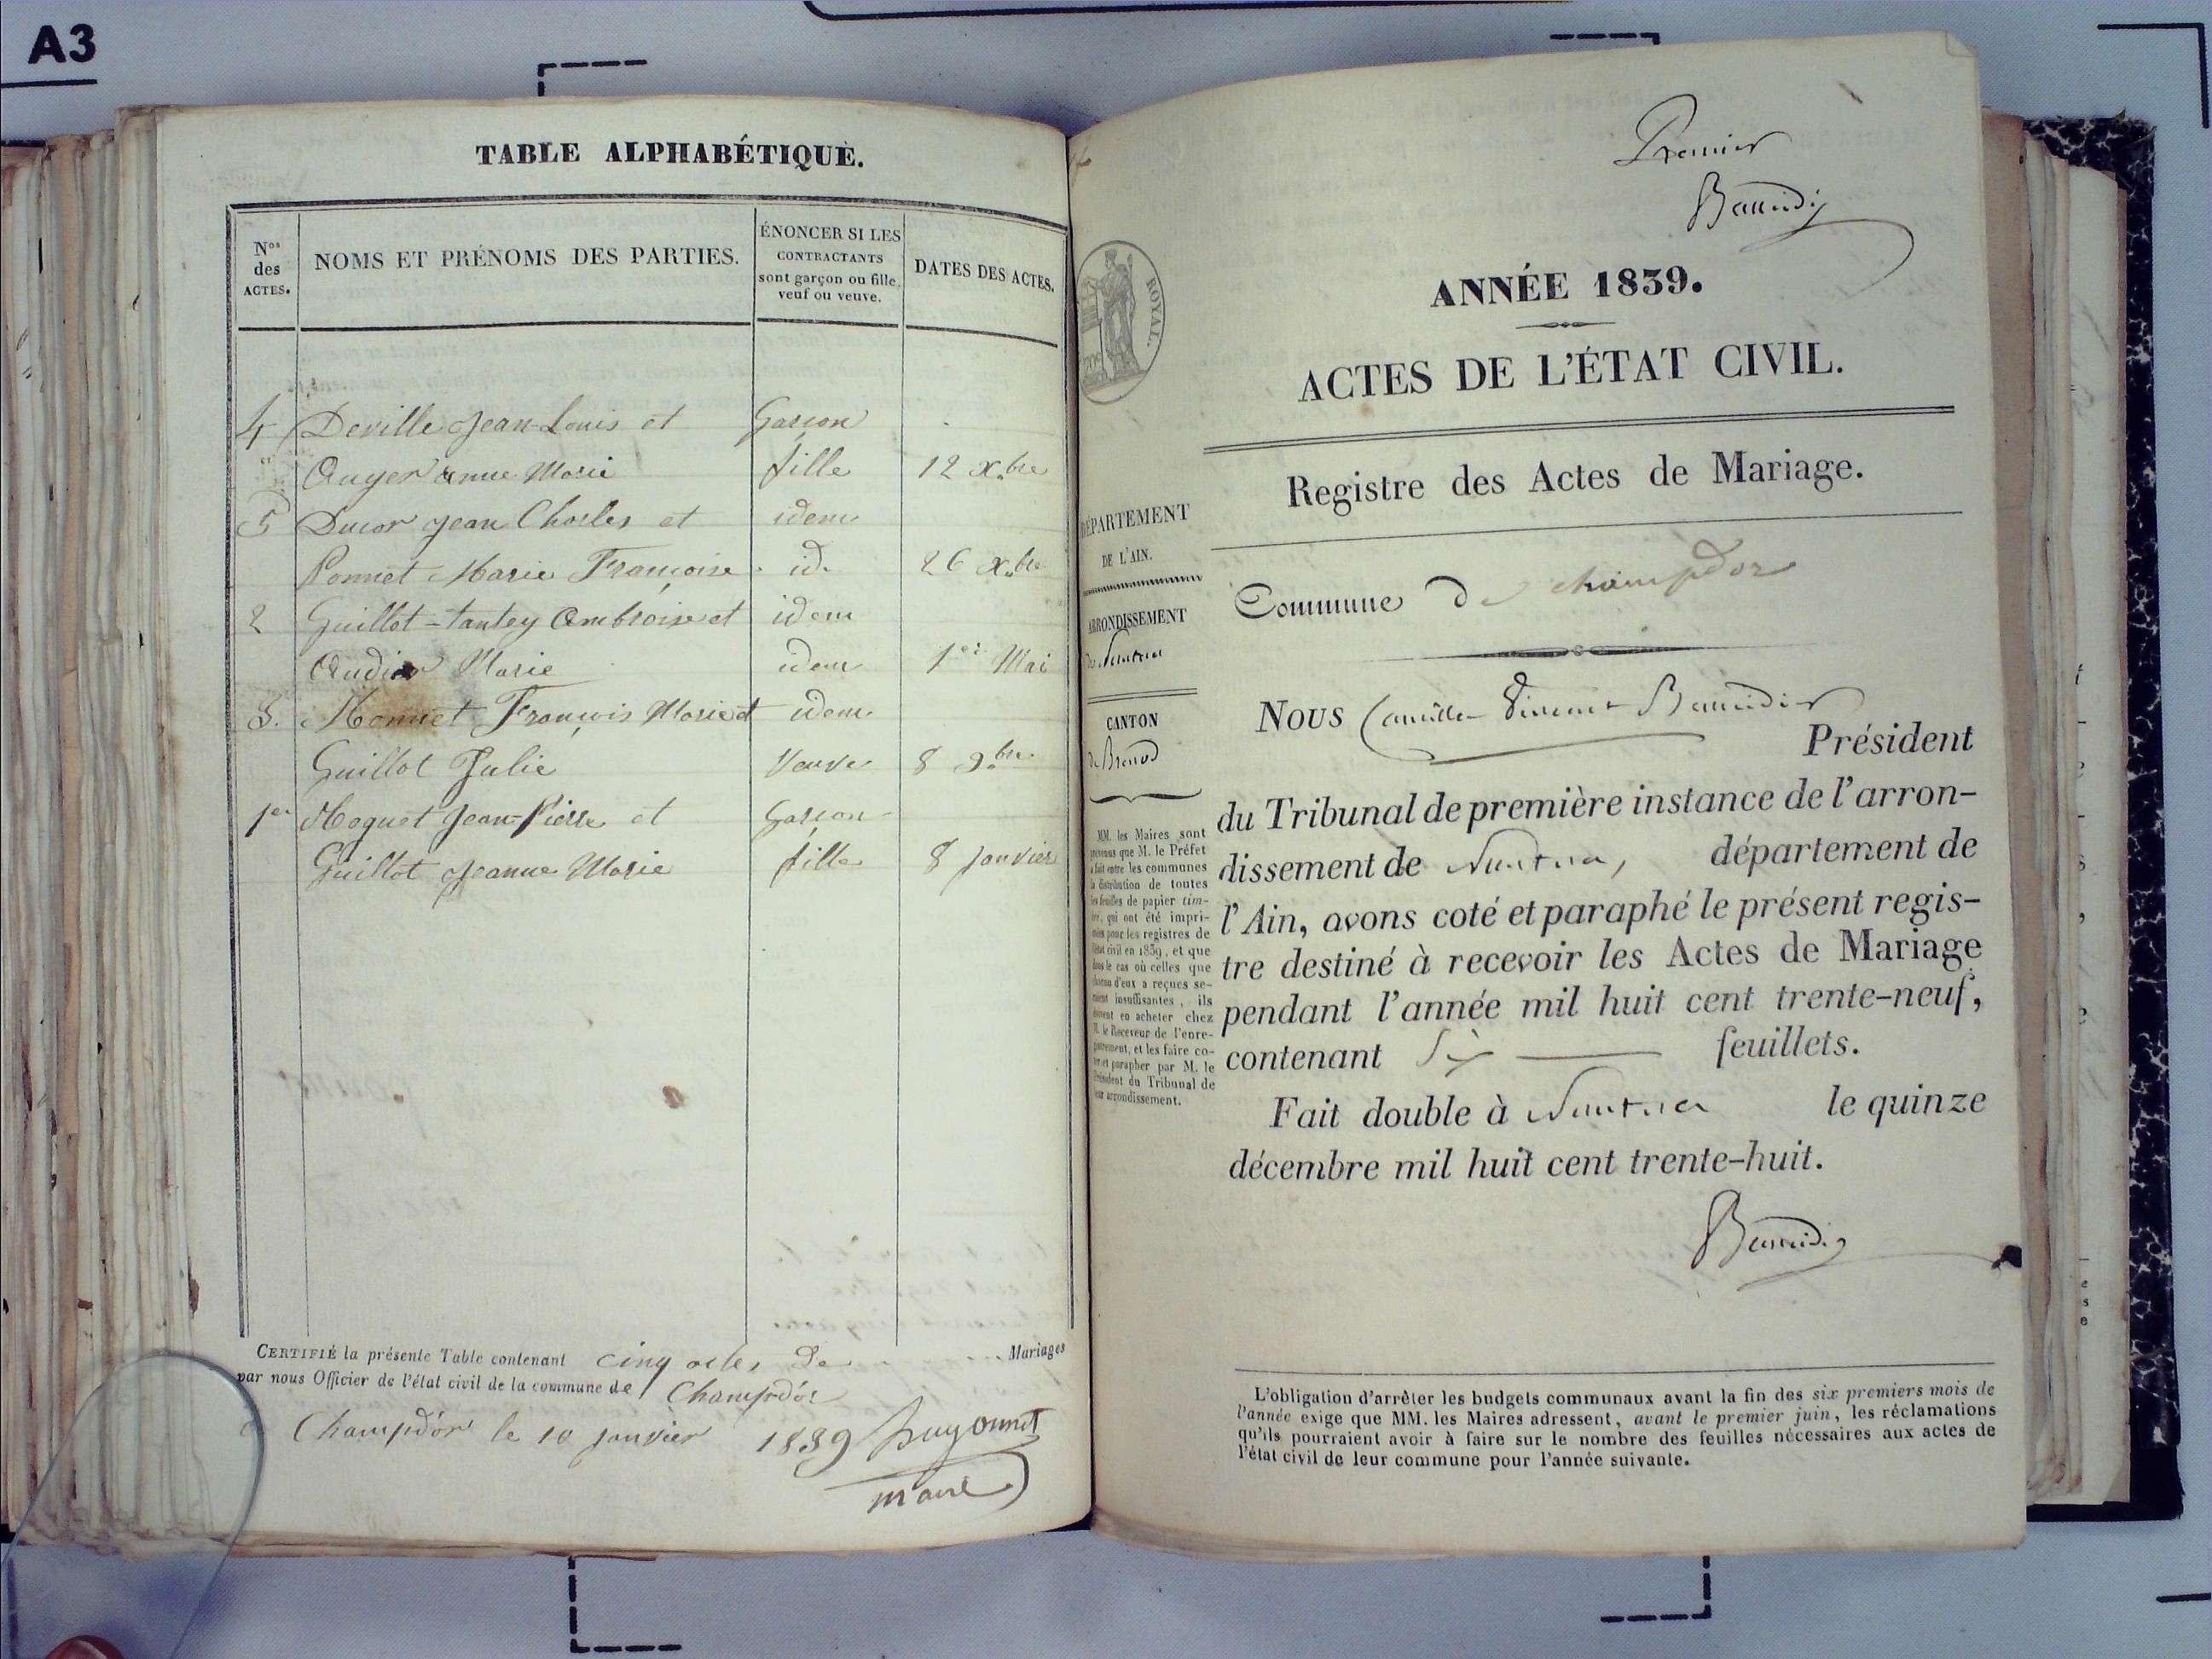 A3
TABLE ALPHABÉTIQUE.
Nos des ACTES.
NOMS ET PRÉNOMS DES PARTIES.
ÉNONCER SI LES CONTRACTANTS sont garçon ou fille, veuf ou veuve.
DATES DES ACTES.
4 Deville Jean-Louis et Garçon
" Auger anne Marie fille 12 Xbre
5 Ducor Jean Charles et idem
Ponnet Marie Françoise id. 26 Xbre
2 Guillot-tantey Ambroise et idem
Marie idem 1er Mai
3. Monnet François Marie et idem
Guillot Julie Veuve 8 9bre
1er Moguet Jean-Pierre et Garçon
Guillot Jeanne Marie fille 8 Janvier
CERTIFIÉ la présente Table contenant cinq actes de Mariages
par nous Officier de l'état civil de la commune de Champdor
Champdor le 10 janvier 1839 Puyonnet
maire
Premier
Baudin
ROYAL.
ANNÉE 1839.
ACTES DE L'ÉTAT CIVIL.
Registre des Actes de Mariage.
DÉPARTEMENT
DE L'AIN.
ARRONDISSEMENT
de Nantua
CANTON
de Brenod
Commune de Champdor
MM. les Maires sont
prévenus que M. le Préfet
a fait entre les communes
la distribution de toutes
les feuilles de papier tim-
bré, qui ont été impri-
mées pour les registres de
l'état civil en 1839, et que
dans le cas où celles que
chacun d'eux a reçues se-
raient insuffisantes, ils
doivent en acheter chez
M. le Receveur de l'enre-
gistrement, et les faire co-
ter et parapher par M. le
Président du Tribunal de
leur arrondissement.
Nous Camille Vincent
Président
du Tribunal de première instance de l'arron-
dissement de Nantua, département de
l'Ain, avons coté et paraphé le présent regis-
tre destiné à recevoir les Actes de Mariage
pendant l'année mil huit cent trente-neuf,
contenant Six feuillets.
Fait double à Nantua le quinze
décembre mil huit cent trente-huit.
L'obligation d'arrêter les budgets communaux avant la fin des six premiers mois de
l'année exige que MM. les Maires adressent, avant le premier juin, les réclamations
qu'ils pourraient avoir à faire sur le nombre des feuilles nécessaires aux actes de
l'état civil de leur commune pour l'année suivante.